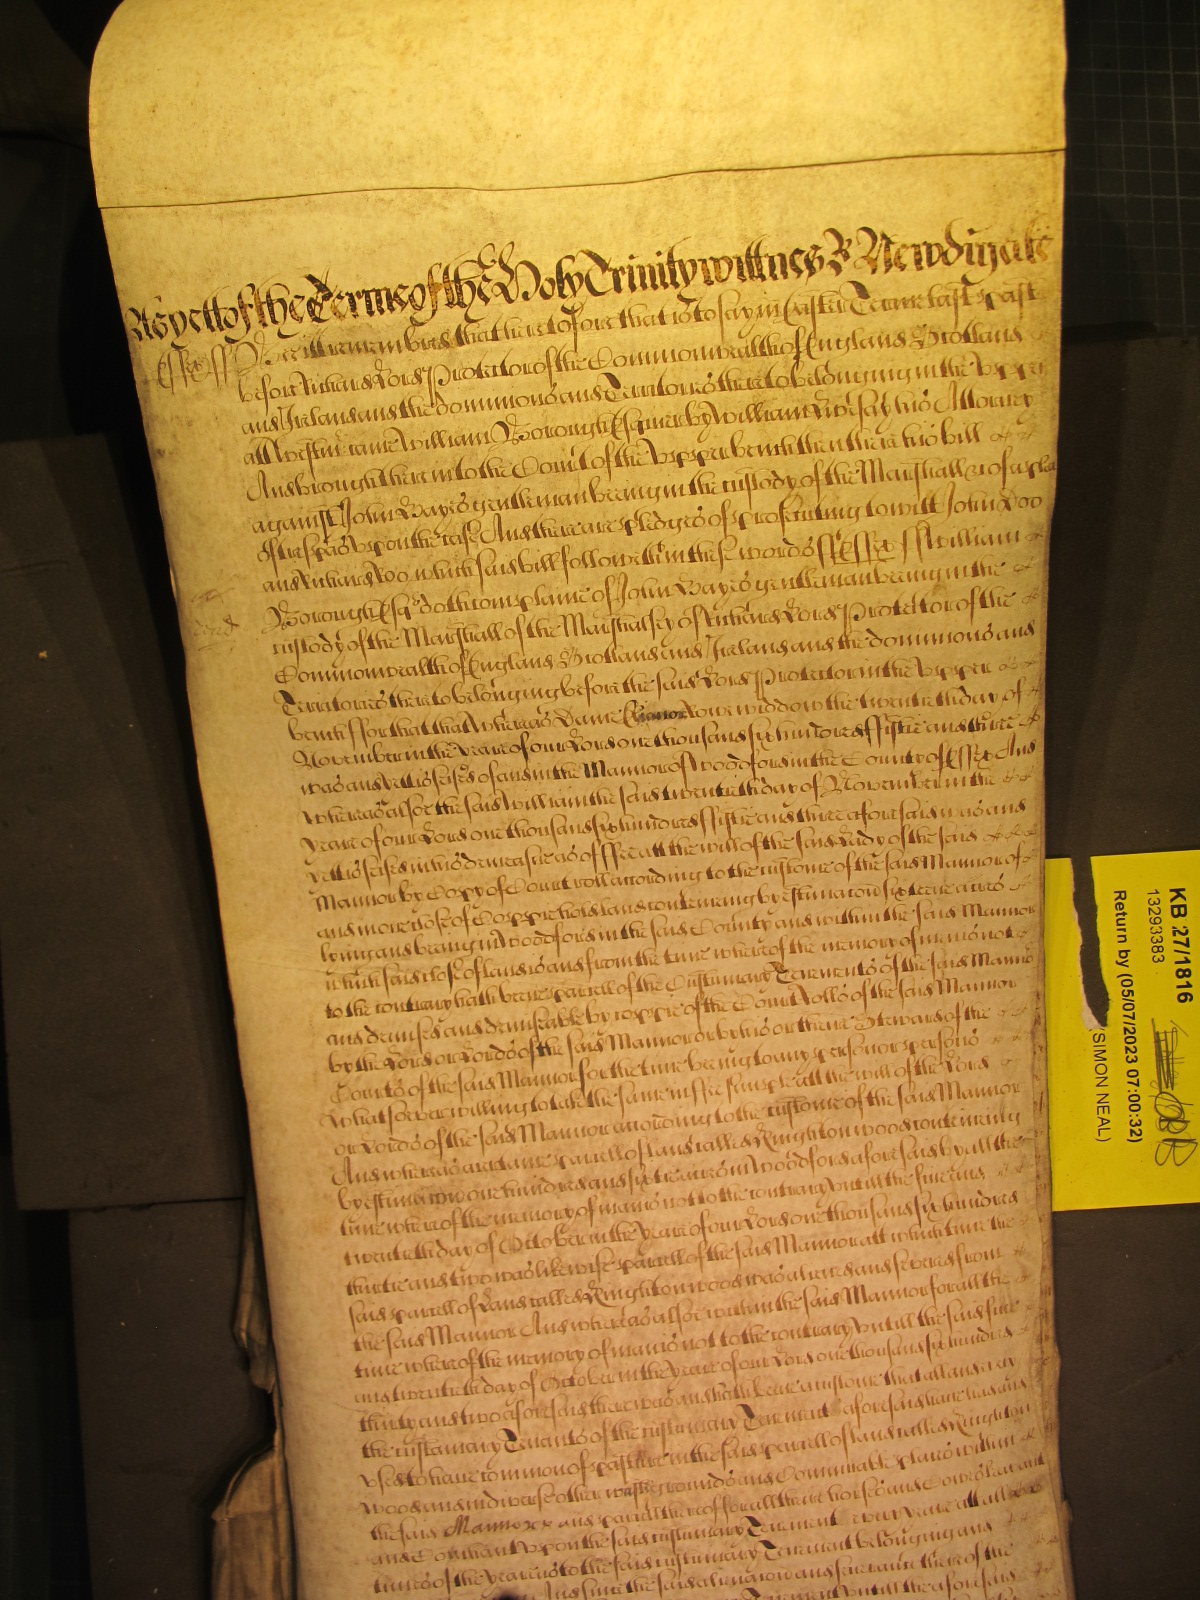 As yett of the Terme of the Holy Trinity wittnes R Newdigate
Essex ss Bee itt remembred that heretofore that is to say in Easter Terme last past
before Richard Lord Protector of the Commonwealth of England Scotland
and Ireland and the dominions and Territories thereto belonging in the Upper
att Westm came William Borough Esquier by William Livesay his Attorney
And brought here into the Court of the Upper bench then there his bill
against John Hayes gentleman beeing in the custody of the Marshall &c of a plea
of trespas upon the case And there are pledges of prosecuting to witt John Doo
and Richard Roo which said bill followeth in these words ss Essex ss William
Borough Esqr doth complaine of John Hayes gentleman beeing in the
custody of the Marshall of the Marshalsey of Richard Lord Protector of the
Commonwealth of England Scotland and Ireland and the dominions and
Territories thereto belonging before the said Lord Protector in the Upper
bench ffor that that whereas Dame Rowe widdow the twentieth day of
November in the yeare of our Lord one thousand six hundred ffiftie and three
was and yett is seised of and in the Mannor of Woodford in the County of Essex And
whereas alsoe the said William the said twentieth day of November in the
yeare of our Lord one thousand six hundred ffiftie and three aforesaid was and
yett is seised in his demeasne as of ffee att the will of the said Lady of the said
Mannor by Coppy of Court roll according to the custome of the said Mannor of
and in one close of Coppiehold land conteineing by estimacon sixteene acres
lying and beeing in Woodford in the said County and within the said Mannor
which said close of land is and from the time whereof the memory of men is not
to the contrary hath beene parcell of the Customary Tenements of the said Mannor
and demised and demiseable by coppie of the Court Rolls of the said Mannor
by the Lord or Lords of the said Mannor or by his or theire Steward of the
Courts of the said Mannor for the time beeing to any person or persons
whatsoever willing to take the same in ffee simple att the will of the Lord
or Lords of the said Mannor according to the custome of the said Mannor
And whereas a certaine parcell of land called Knighton wood conteineing
by estimacon one hundred and six acres in Woodford aforesaid by all the
time whereof the memory of man is not to the contrary untill the five and
twentieth day of October in the yeare of our Lord one thousand six hundred
thirtie and two was likewise parcell of the said Mannor att which time the
said parcell of Land called Knighton wood was aliened and severed from
the said Mannor And whereas alsoe within the said Mannor for all the
time whereof the memory of man is not to the contrary untill the said five
and twentieth day of October in the yeare of our Lord one thousand six hundred
thirty and two aforesaid there was and hath beene a custome that all and every
the customary Tenants of the customary Tenement aforesaid have had and
used to have common of pasture in the said parcell of land called Knighton
wood and in diverse other waste grounds and Commonable places within
the said Mannor and parcell thereof for all theire horses and Cowes levant
and Couchant upon the said customary Tenement every yeare att all
times of the yeare as to the said customary Tenement belonging and
And since the said alienacon and severance thereof the
Tenement untill the aforesaid
KB 27/1816
13293383
Return by (05/07/2023 07:00:32)
(SIMON NEAL)